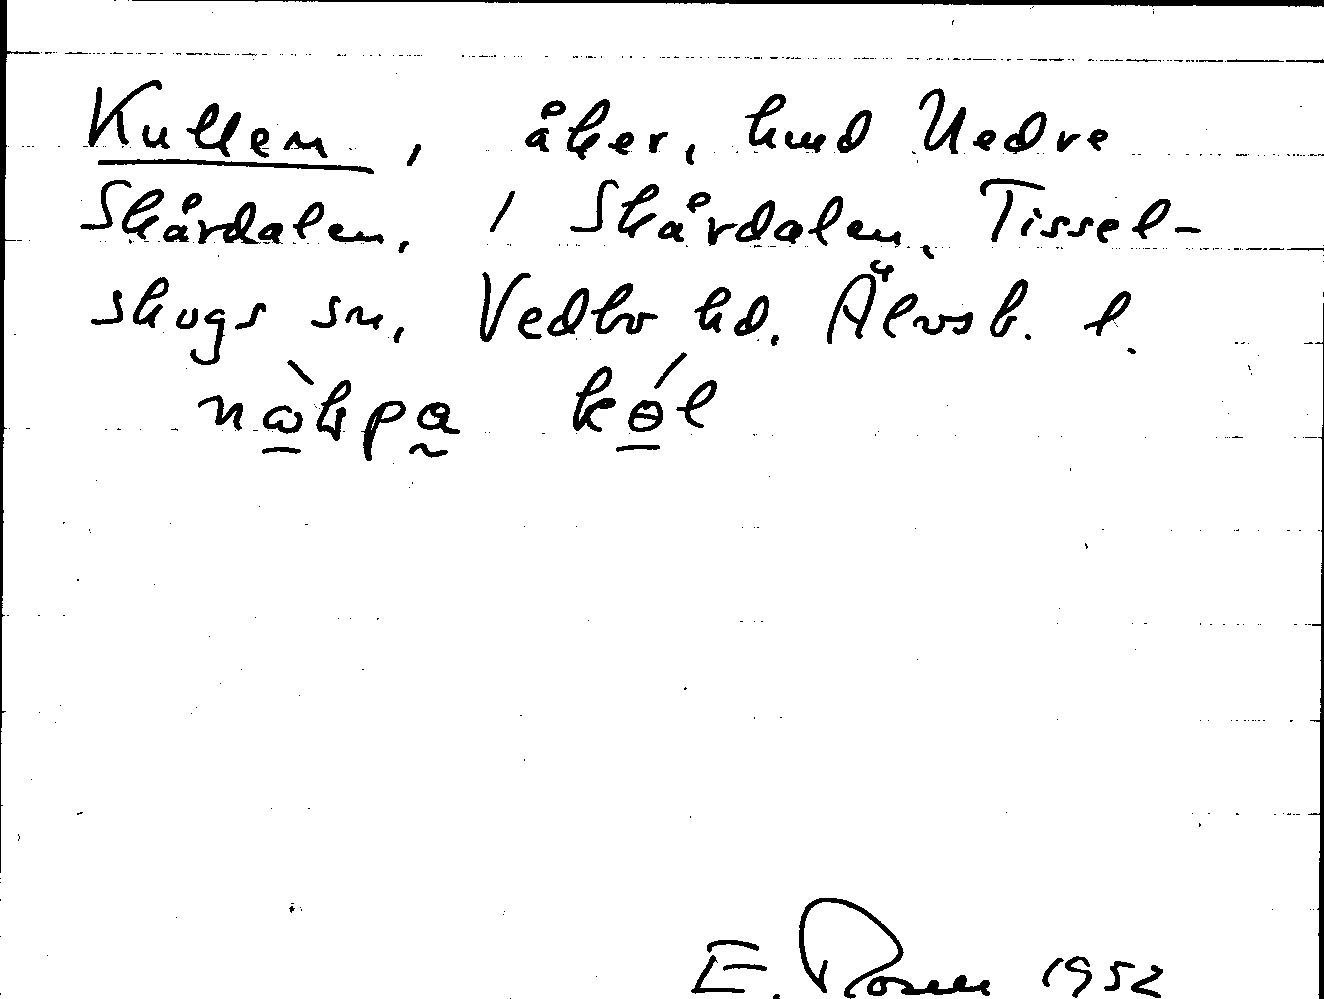 Kullen, åker, hmd Nedre
Skårdalen, 1 Skårdalen, Tissel-
skogs sn, Vedbo hd. Älvsb. l.
kól
E. Rosell 1952